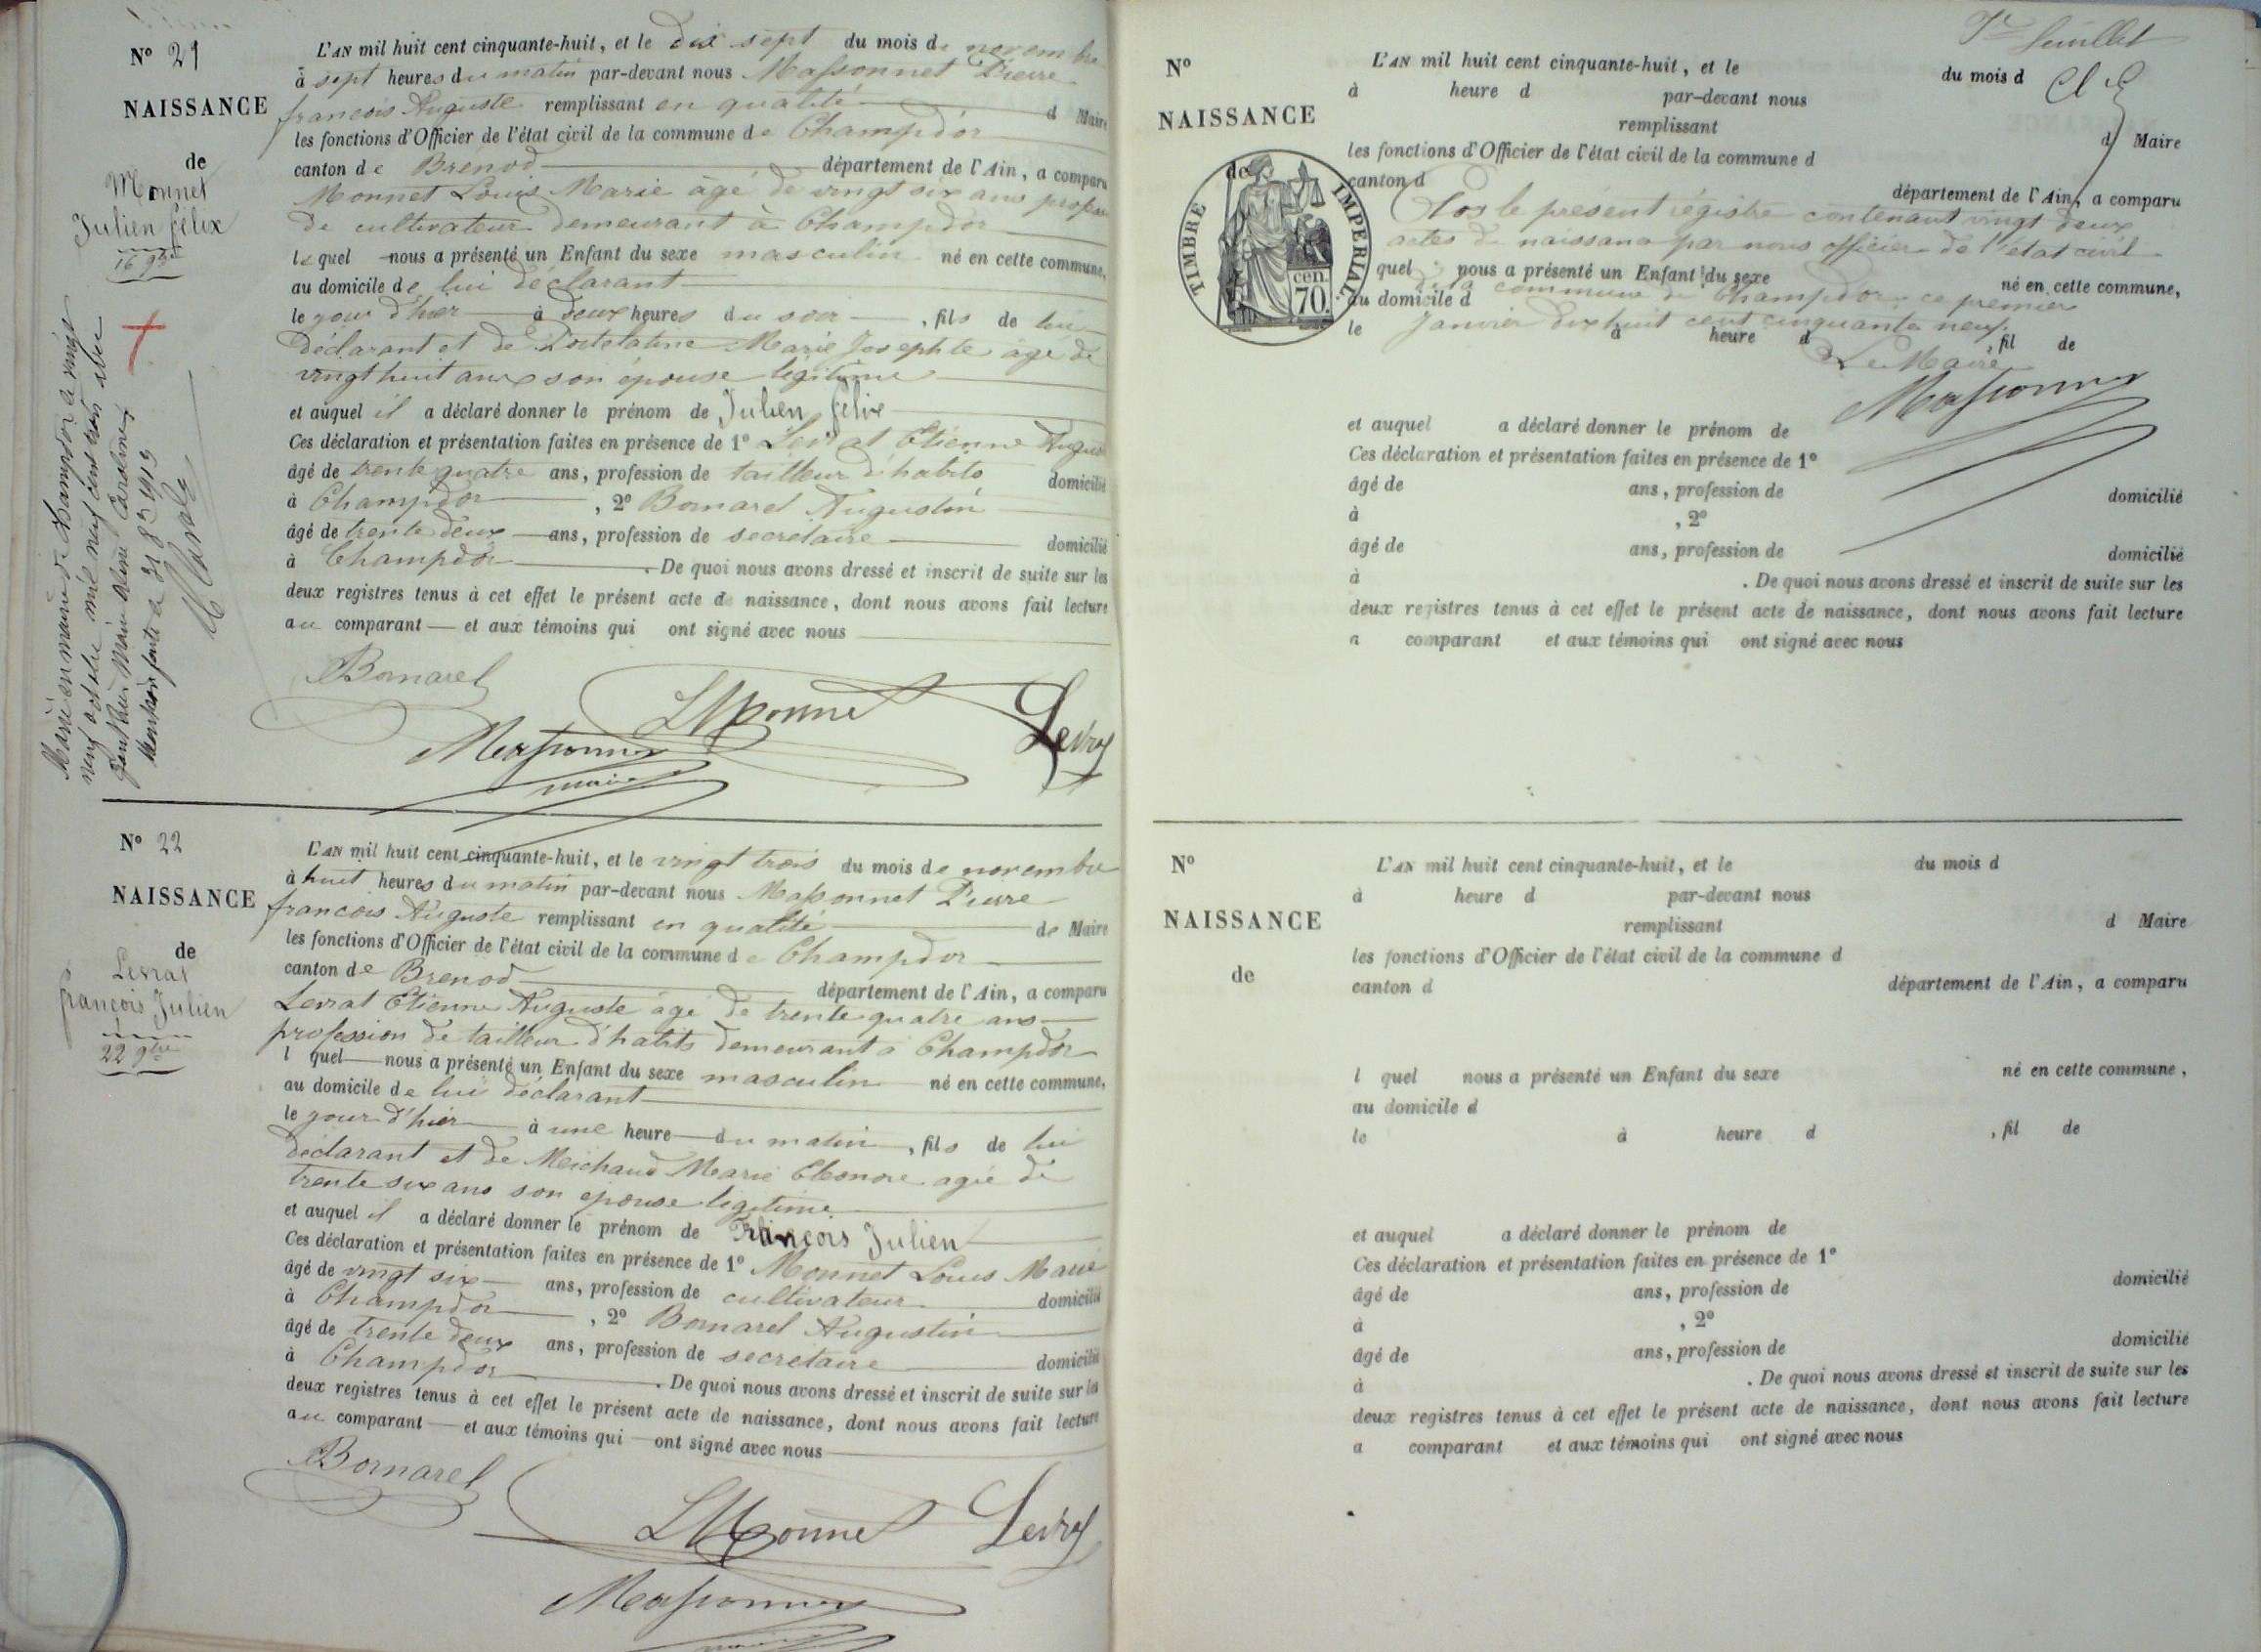 N° 21
NAISSANCE
de
Monnet
Julien félix
16 9bre
L'AN mil huit cent cinquante-huit, et le dix sept du mois de novembre
à sept heures du matin par-devant nous Massonnet Pierre
francois Auguste remplissant en qualité d Maire
les fonctions d'Officier de l'état civil de la commune de Champdor
canton de Brénod département de l'Ain, a comparu
Monnet Louis Marie âgé de vingt six ans profession
de cultivateur demeurant à Champdor
lequel nous a présenté un Enfant du sexe masculin né en cette commune,
au domicile de lui déclarant
le jour d'hier à deux heures du soir, fils de lui
déclarant et de Marie Josephte âgé de
vingt huit ans son épouse légitime
et auquel il a déclaré donner le prénom de Julien félix
Ces déclaration et présentation faites en présence de 1° Levrat Etienne Auguste
âgé de trente quatre ans, profession de tailleur d'habits domicilié
à Champdor, 2° Bornarel Augustin
âgé de trente deux ans, profession de secretaire domicilié
à Champdor. De quoi nous avons dressé et inscrit de suite sur les
deux registres tenus à cet effet le présent acte de naissance, dont nous avons fait lecture
au comparant et aux témoins qui ont signé avec nous
Bornarel LMonnet Levrat
Massonnet
maire
Marié en mairie de Champdor le vingt
neuf octobre mil neuf cent trois avec
Marie Caroline
Mention faite le
N° 22
NAISSANCE
de
Levrat
françois Julien
22 9bre
L'AN mil huit cent cinquante-huit, et le vingt trois du mois de novembre
à huit heures du matin par-devant nous Massonnet Pierre
francois Auguste remplissant en qualité de Maire
les fonctions d'Officier de l'état civil de la commune de Champdor
canton de Brenod département de l'Ain, a comparu
Levrat Etienne Auguste âgé de trente quatre ans
profession de tailleur d'habits demeurant à Champdor
l quel nous a présenté un Enfant du sexe masculin né en cette commune,
au domicile de lui déclarant
le jour d'hier à une heure du matin, fils de lui
déclarant et de Michaud Marie Eleonore agée de
trente six ans son épouse legitime
et auquel il a déclaré donner le prénom de François Julien
Ces déclaration et présentation faites en présence de 1° Monnet Louis Marie
âgé de vingt six ans, profession de cultivateur domicilié
à Champdor, 2° Bornarel Augustin
âgé de trente deux ans, profession de secretaire domicilié
à Champdor. De quoi nous avons dressé et inscrit de suite sur les
deux registres tenus à cet effet le présent acte de naissance, dont nous avons fait lecture
au comparant et aux témoins qui ont signé avec nous
Bornarel LMonnet Levrat
Massonnet
maire
feuillet
N°
NAISSANCE
de
TIMBRE IMPERIAL
cen.
70.
L'AN mil huit cent cinquante-huit, et le du mois d
à heure d par-devant nous
remplissant d Maire
les fonctions d'Officier de l'état civil de la commune d
canton d département de l'Ain, a comparu
Clos le présent régistre contenant vingt deux
actes de naissance par nous officier de l'état civil
quel nous a présenté un Enfant du sexe né en cette commune,
de la commune de Champdor ce premier
au domicile d
Janvier dix huit cent cinquante neuf.
le à heure d, fil de
Le Maire
Massonnet
et auquel a déclaré donner le prénom de
Ces déclaration et présentation faites en présence de 1°
âgé de ans, profession de domicilié
à, 2°
âgé de ans, profession de domicilié
à. De quoi nous avons dressé et inscrit de suite sur les
deux registres tenus à cet effet le présent acte de naissance, dont nous avons fait lecture
a comparant et aux témoins qui ont signé avec nous
N°
NAISSANCE
de
L'AN mil huit cent cinquante-huit, et le du mois d
à heure d par-devant nous
remplissant d Maire
les fonctions d'Officier de l'état civil de la commune d
canton d département de l'Ain, a comparu
l quel nous a présenté un Enfant du sexe né en cette commune,
au domicile d
le à heure d, fil de
et auquel a déclaré donner le prénom de
Ces déclaration et présentation faites en présence de 1°
âgé de ans, profession de domicilié
à, 2°
âgé de ans, profession de domicilié
à. De quoi nous avons dressé et inscrit de suite sur les
deux registres tenus à cet effet le présent acte de naissance, dont nous avons fait lecture
a comparant et aux témoins qui ont signé avec nous